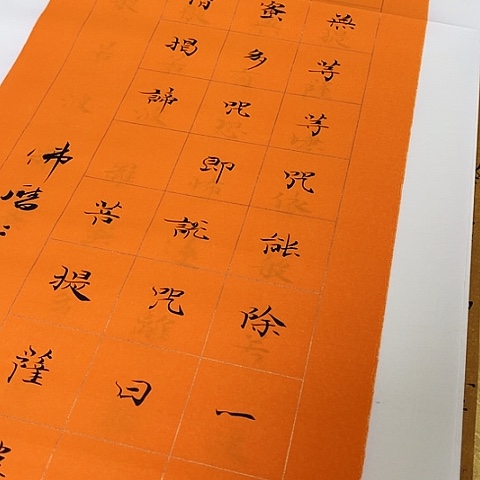 無等等咒能除一
蜜多咒即說咒曰
揭諦 菩提薩
佛曆